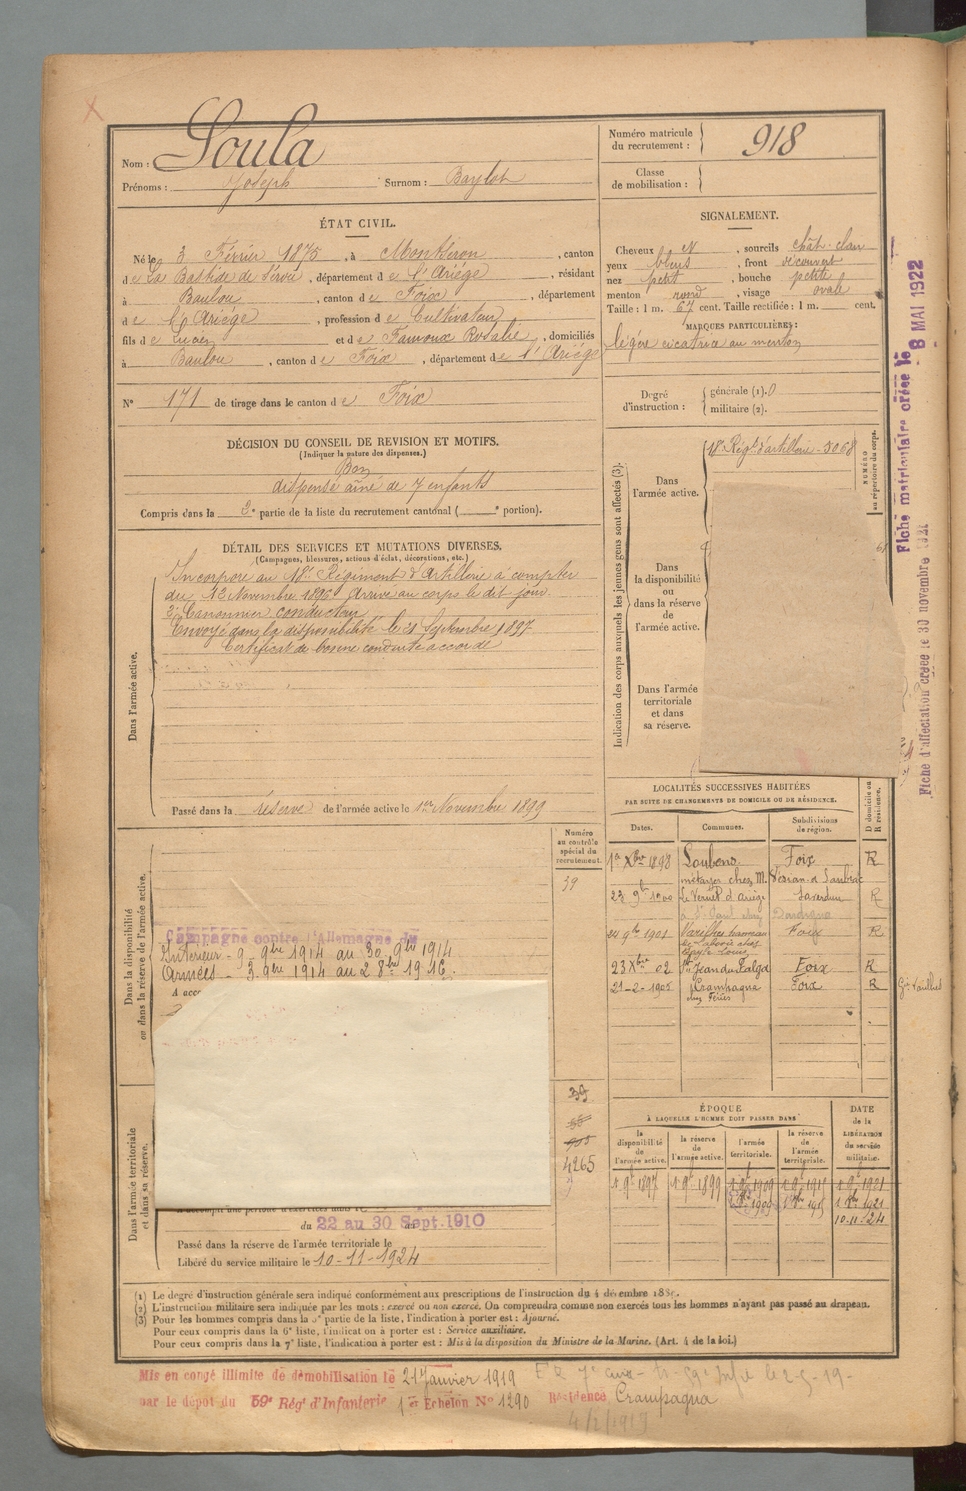 Nom : Soula
Prénoms : Joseph Surnom : Baylot
Numéro matricule du recrutement : 918
Classe de mobilisation :
ÉTAT CIVIL.
Né le 3 Février 1875, à Montséron, canton
de La Bastide de Sérou, département de l'Ariége, résidant
à Baulou, canton de Foix, département
de l'Ariége, profession de Cultivateur
fils de Lucien et de Famoux Rosalie, domiciliés
à Baulou, canton de Foix, département de l'Ariége
N° 171 de tirage dans le canton de Foix
SIGNALEMENT.
Cheveux N, sourcils chât-clair
yeux bleus, front découvert
nez petit, bouche petite
menton rond, visage ovale
Taille : 1 m. 67 cent. Taille rectifiée : 1 m. cent.
MARQUES PARTICULIÈRES :
légère cicatrice au menton
Degré d'instruction : générale (1). 0
militaire (2).
DÉCISION DU CONSEIL DE REVISION ET MOTIFS.
(Indiquer la nature des dispenses.)
Bon
dispensé aîné de 7 enfants
Compris dans la 2e partie de la liste du recrutement cantonal ( e portion).
DÉTAIL DES SERVICES ET MUTATIONS DIVERSES.
(Campagnes, blessures, actions d'éclat, décorations, etc.)
Dans l'armée active.
Incorporé au 18e Régiment d'Artillerie à compter
du 12 Novembre 1896 Arrivé au corps le dit jour
2e Canonnier conducteur
Envoyé dans la disponibilité le 21 Septembre 1897
Certificat de bonne conduite accordé
Passé dans la réserve de l'armée active le 1er Novembre 1899
Indication des corps auxquels les jeunes gens sont affectés (3).
Dans l'armée active.
18e Régt d'artillerie - 3068
NUMÉRO au répertoire du corps.
Dans la disponibilité ou dans la réserve de l'armée active.
Dans l'armée territoriale et dans sa réserve.
Dans la disponibilité ou dans la réserve de l'armée active.
Numéro au contrôle spécial du recrutement.
39
Campagne contre l'Allemagne du
Intérieur - 9 - 9bre 1914 au 30 9bre 1914
Armées - 3 9bre 1914 au 2 8bre 1916.
A acco
LOCALITÉS SUCCESSIVES HABITÉES
PAR SUITE DE CHANGEMENTS DE DOMICILE OU DE RÉSIDENCE.
Dates. Communes. Subdivisions de région. D domicile ou R résidence.
1er Xbre 1898 Loubens Foix R
métayer chez M.
23 9b 1900 Le Vernet d'Ariège Saverdun R
24 9bre 1901 Varilhes hameau Foix R
23 Xbre 02 St Jean du Falga Foix R
21-2-1905 Crampagna Foix R
Dans l'armée territoriale et dans sa réserve.
39
4265
ÉPOQUE
À LAQUELLE L'HOMME DOIT PASSER DANS
la disponibilité de l'armée active. la réserve de l'armée active. l'armée territoriale. la réserve de l'armée territoriale. DATE de la LIBÉRATION du service militaire.
1 9b 1897 1 9b 1899 1 9b 1909 1 9b 1915 1 9b 1921
10-11-24
A accompli une période d'exercices dans le
du 22 au 30 Sept. 1910
Passé dans la réserve de l'armée territoriale le
Libéré du service militaire le 10-11-1924
(1) Le degré d'instruction générale sera indiqué conformément aux prescriptions de l'instruction du 4 décembre 188
(2) L'instruction militaire sera indiquée par les mots : exercé ou non exercé. On comprendra comme non exercés tous les hommes n'ayant pas passé au drapeau.
(3) Pour les hommes compris dans la 5e partie de la liste, l'indication à porter est : Ajourné.
Pour ceux compris dans la 6e liste, l'indication à porter est : Service auxiliaire.
Pour ceux compris dans la 7e liste, l'indication à porter est : Mis à la disposition du Ministre de la Marine. (Art. 4 de la loi.)
Mis en congé illimité de démobilisation le 21 Janvier 1919
par le dépôt du 59e Régt d'Infanterie 1er Echelon N° 1290 Résidence Crampagna
Fiche matriculaire créée le 8 MAI 1922
Fiche d'affectation créée le 30 novembre 1921